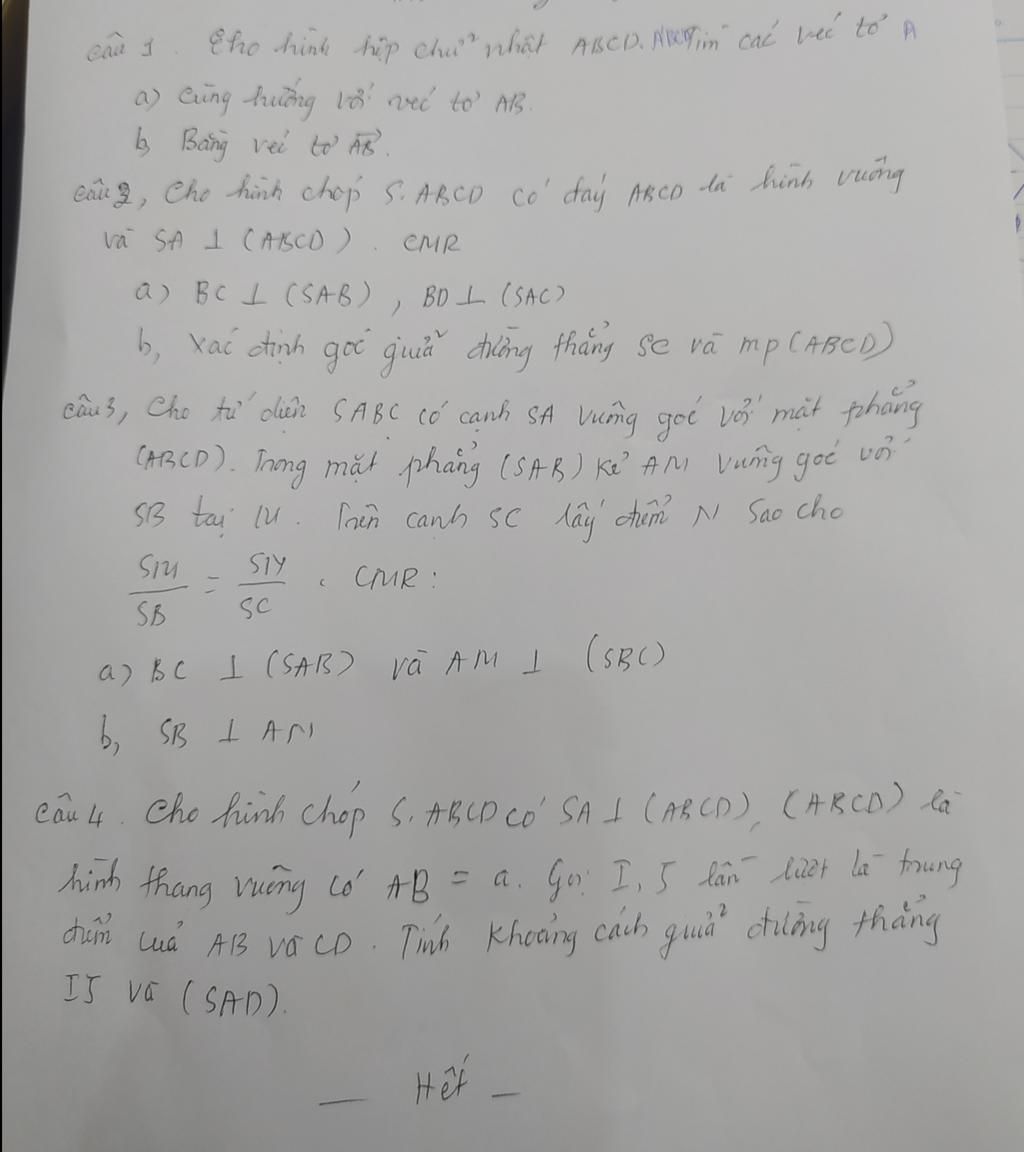 Câu 1. Cho hình hộp chữ nhật ABCD. Tìm các véc tơ
a) Cùng hướng với véc tơ AB.
b, Bằng véc tơ A͞B.
Câu 2, Cho hình chóp S.ABCD có đáy ABCD là hình vuông
và SA ⊥ (ABCD). CMR
a) BC ⊥ (SAB), BD ⊥ (SAC)
b, Xác định góc giữa đường thẳng SC và mp (ABCD)
Câu 3, Cho tứ diện SABC có cạnh SA vuông góc với mặt phẳng
(ABCD). Trong mặt phẳng (SAB) kẻ AM vuông góc với
SB tại M. Trên cạnh SC lấy điểm N sao cho
SM/SB = SN/SC. CMR:
a) BC ⊥ (SAB) và AM ⊥ (SBC)
b, SB ⊥ AN
Câu 4. Cho hình chóp S.ABCD có SA ⊥ (ABCD), (ABCD) là
hình thang vuông có AB = a. Gọi I, J lần lượt là trung
điểm của AB và CD. Tính khoảng cách giữa đường thẳng
IJ và (SAD).
— Hết —